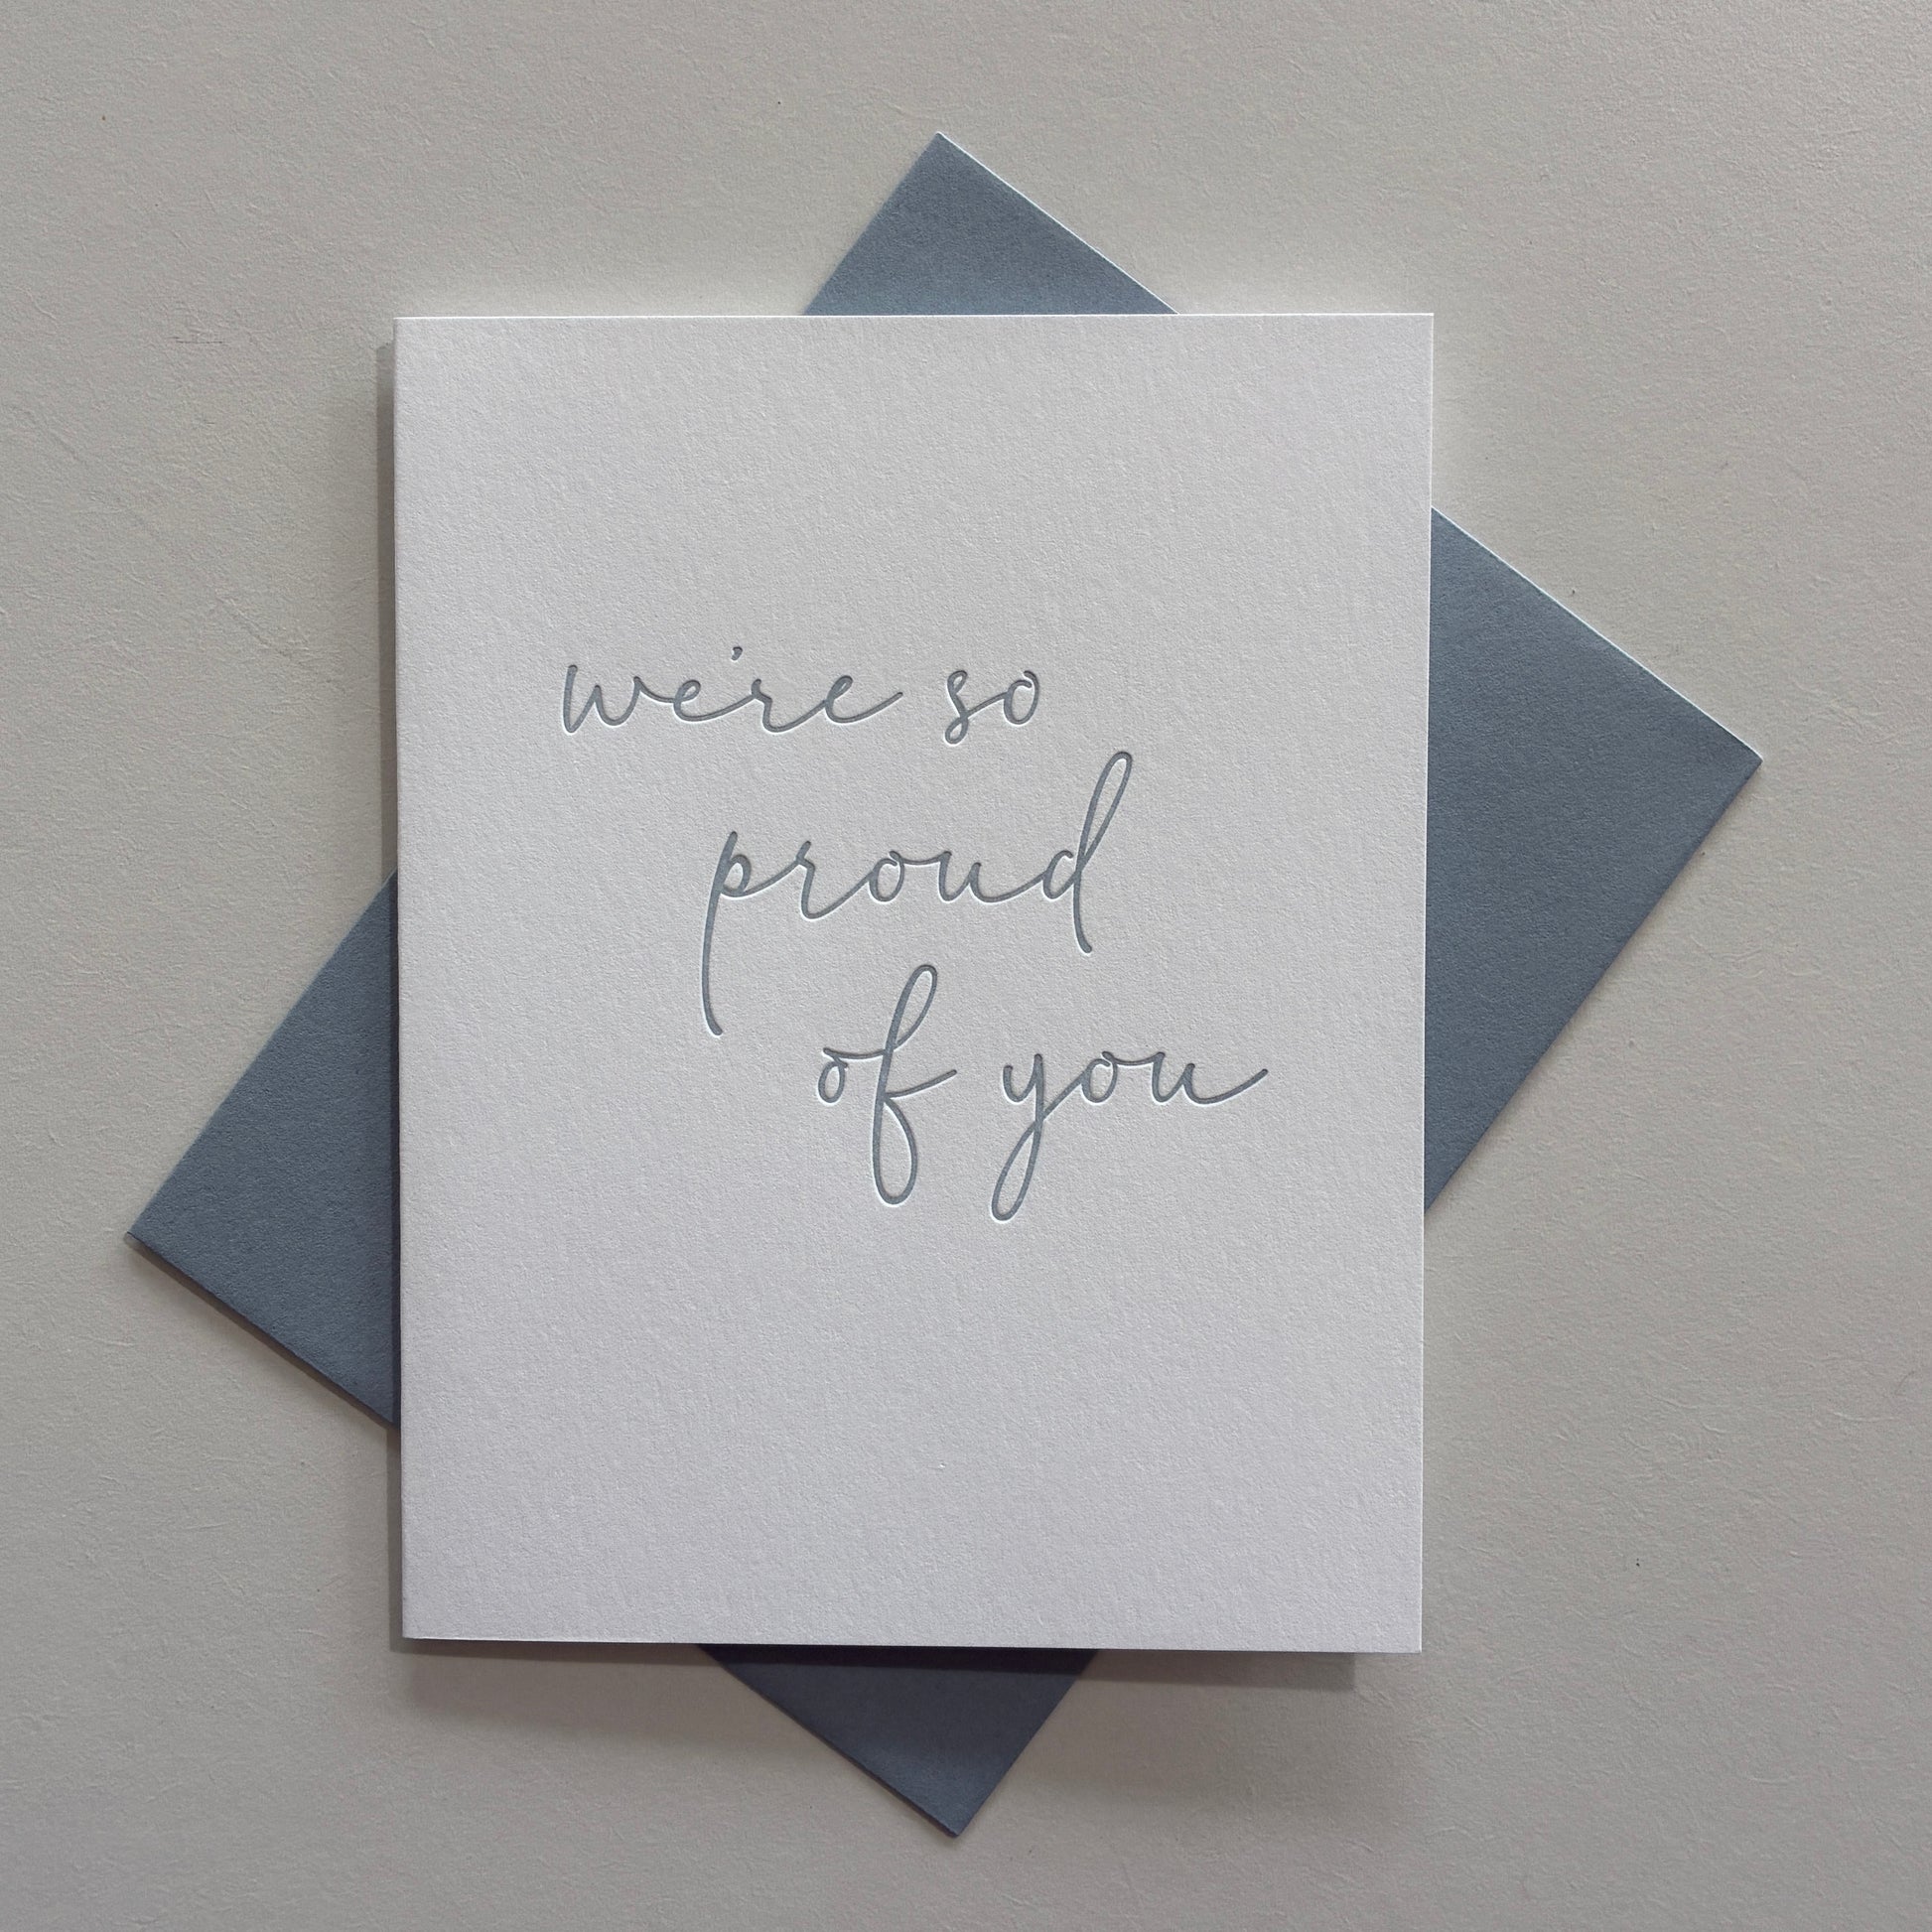 we're so
proud
of you